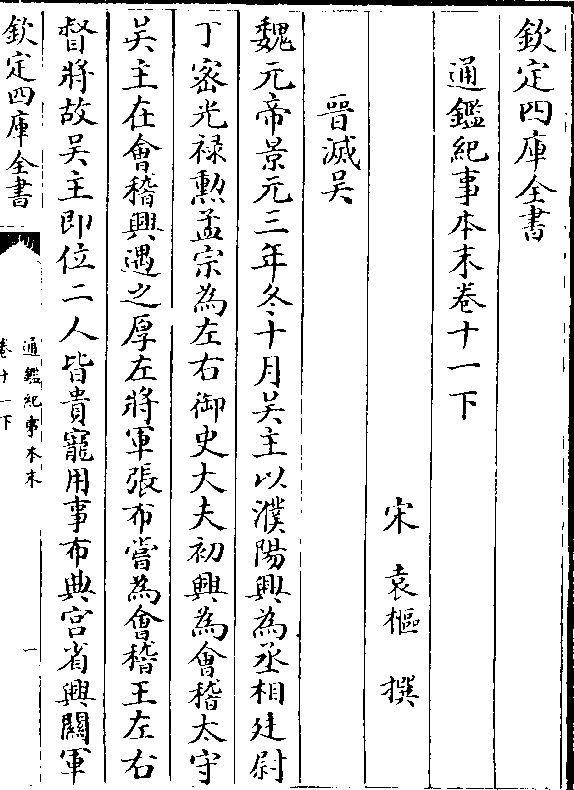 欽定四庫全書
通鑑紀事本末卷十一下
宋 袁樞 撰
晉滅吴
魏元帝景元三年冬十月吴主以濮陽興為丞相廷尉
丁密光禄勲孟宗為左右御史大夫初興為會稽太守
吴主在會稽興遇之厚左將軍張布嘗為會稽王左右
督將故吴主即位二人皆貴寵用事布典宫省興關軍
欽定四庫全書
通鑑紀事本末
卷十一下
一